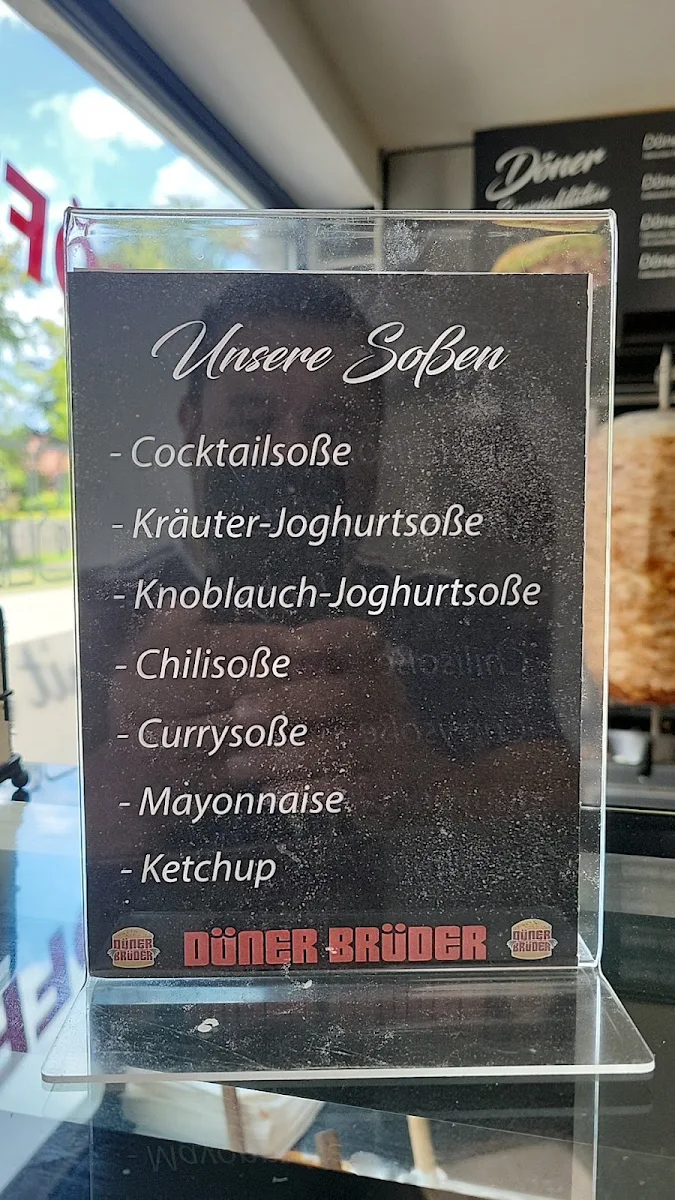 Döner
Unsere Soßen
- Cocktailsoße
- Kräuter-Joghurtsoße
- Knoblauch-Joghurtsoße
- Chilisoße
- Currysoße
- Mayonnaise
- Ketchup
DÖNER BRÜDER
DÖNER BRÜDER
DÖNER BRÜDER